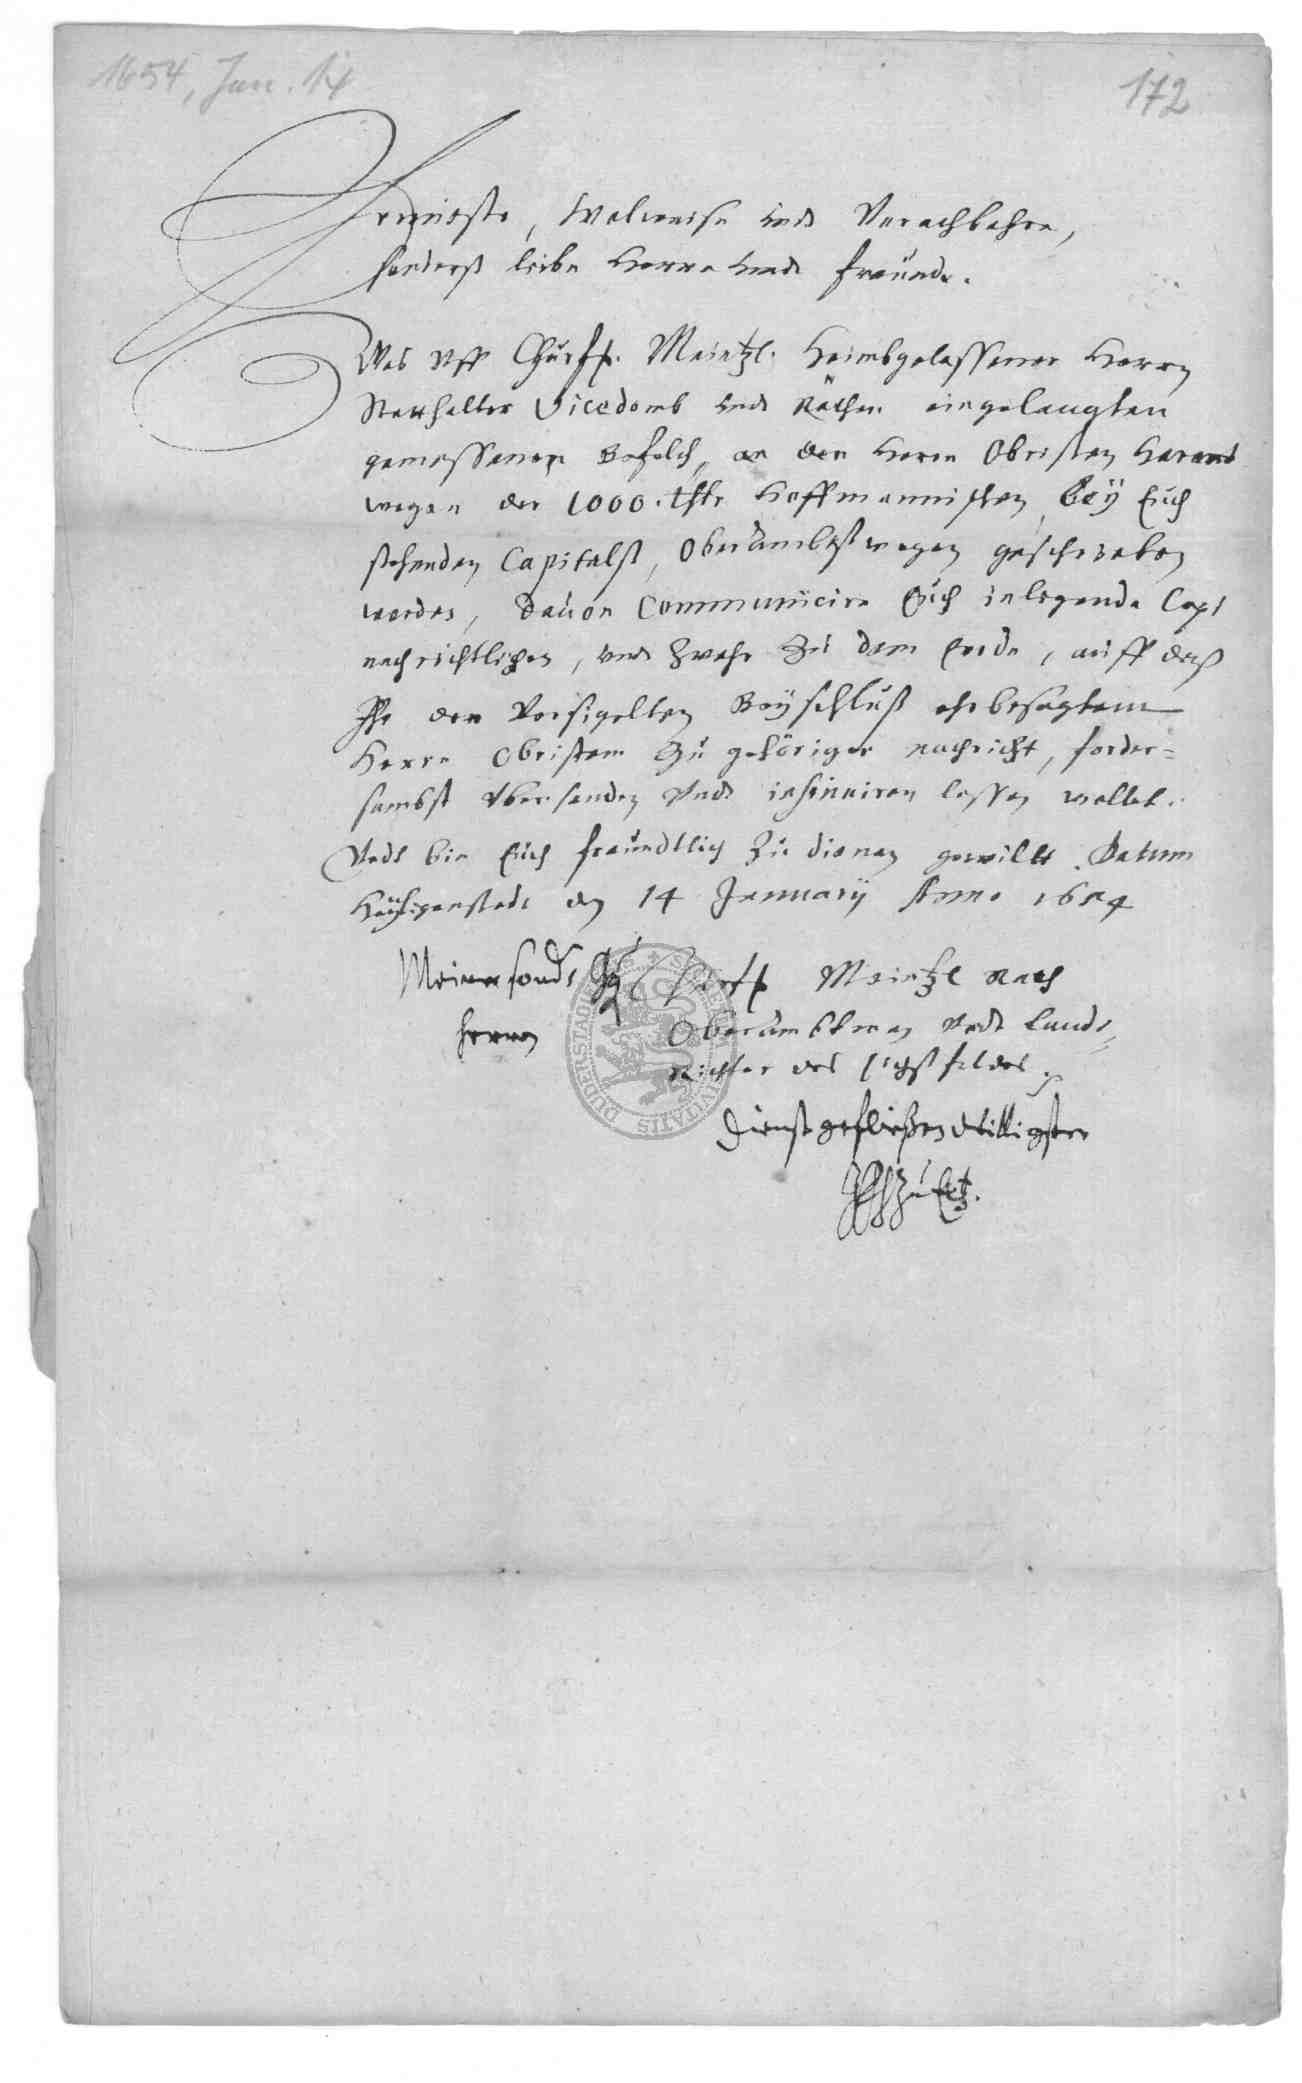 1654, Jan. 14
172
Ernveste, Wolweise undt Vorachtbahre,
sonderß liebe Herrn undt freunde.
Was Uff Churfl. Maintzl. Heimbgelassener Herrn
Statthalter Vicedomb undt Räthen eingelangten
gemessenen Befelch, an den Herrn Obristen
wegen der 1000. thlr Hoffmannischen, bey Euch
stehenden Capitalß, Oberambtßwegen geschrieben
worden, davon Communicire Euch inligende Copi
nachrichtlichen, undt zwahr zu dem Ende, auff daß
Ihr den Versigelten Beyschluß ehrbesagtem
Herrn Obristen zu gehöriger nachricht, forder-
sambst ubersenden Undt insinuiren lassen wollet.
Undt bin Euch freundtlich zu dienen gewillt. Datum
Heyligenstadt den 14 January Anno 1654
Meiner sond. Churfl Maintzl Rath
herrn Oberambtman Undt Landt-
Richter des Eichßfeldes
Dienstgefließen Willigster
DUDERSTADIENSIS CIVITATIS